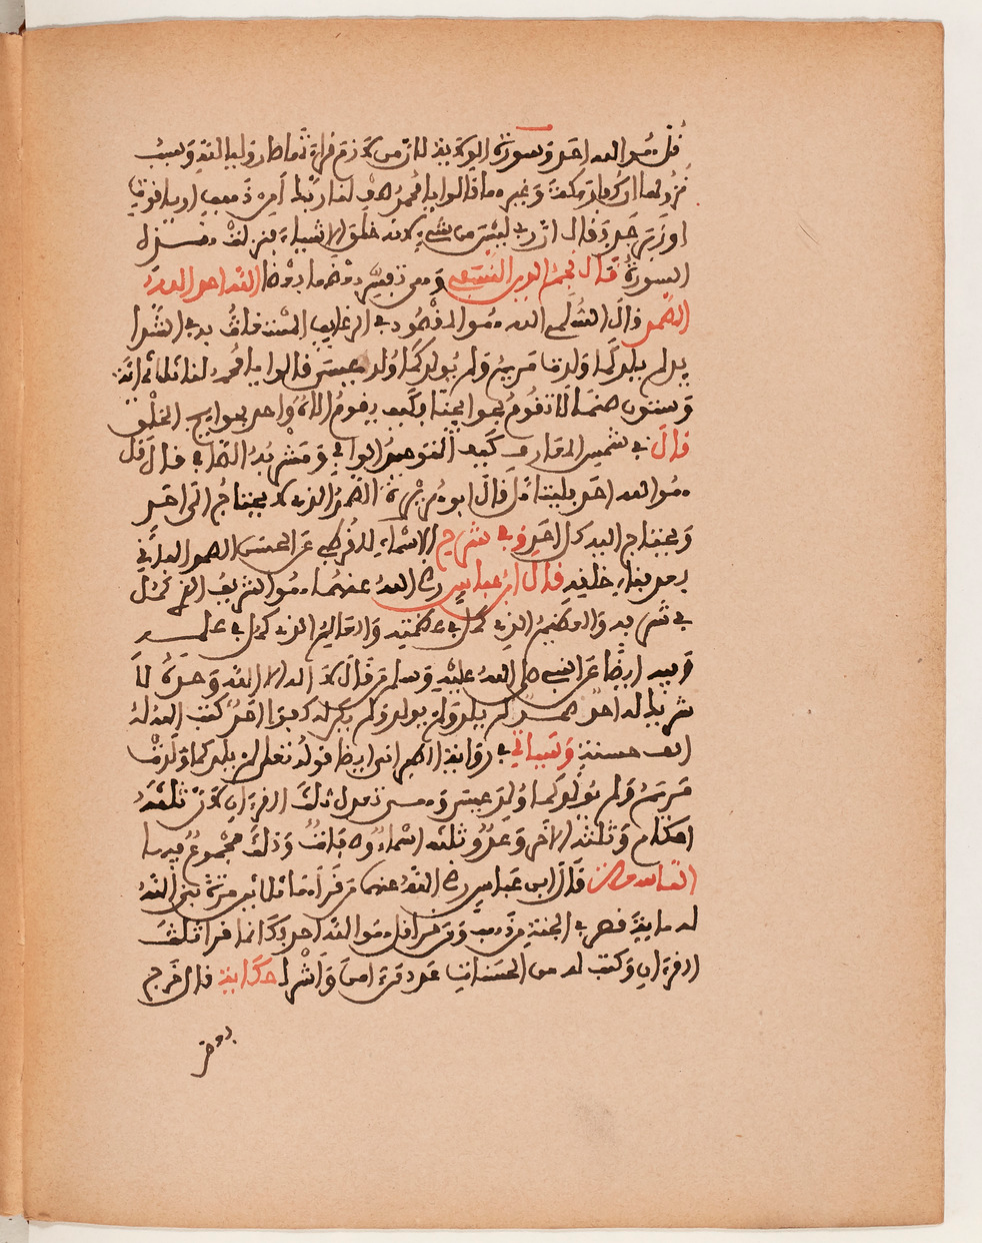 قل هو الله احد وسورة الولاية لان من لازم قراءتها صار وليا لله وسبب
نزولها ان كفار مكة وغيرهم قالوا يا محمد صف لنا ربك أمن ذهب او ياقوت
او زبرجد فقال ان ربي ليس من شيء لانه خلق الاشياء فنزلت هذه
السورة قال نجم الدين النسفي وهي تفسير بعضها بعضا الله احد الله
الصمد قال الثعلبي الله هو المقصود في الرغايب المستغاث به في
لم يلد كما ولدت مريم ولم يولد كما ولد عيسى قالوا يا محمد لنا ثلاثمائة
وستون صنما لا تقوم بحوايجنا فكيف يقوم اله واحد بحوايج الخلق
قال في شمس المعارف كيف التوحيد الوافي ومشربه الصافي قال قل
هو الله احد قال ابو هريرة الصمد الذي لا يحتاج الى احد
ويحتاج اليه كل احد وفي شرح الاسماء للقرطبي عن الحسن الصمد الباقي
بعد فناء خلقه قال ابن عباس رضي الله عنهما هو الشريف الذي كمل
في شرفه والعظيم الذي كمل في عظمته والعالم الذي كمل في علمه
وفيه ايضا عن النبي صلى الله عليه وسلم من قال لا اله الا الله وحده لا
شريك له احد صمد لم يلد ولم يولد ولم يكن له كفوا احد كتب الله له
الف حسنة وسياتي في رواية ايضا قوله تعلى لم يلد كما ولدت
مريم ولم يولد كما ولد عيسى وهي تعدل ثلث القرءان لان ثلثه
احكام وثلثه الاخر وعد وثلثه اسماء وصفات وذلك مجموع فيها
قال ابن عباس رضي الله عنهما من قرأها مائتي مرة بنى الله
له ماية قصر في الجنة من ذهب ومن قرا قل هو الله احد فكانما قرا ثلث
القرءان وكتب له من الحسنات عدد من امن واشرك حكاية قال خرج